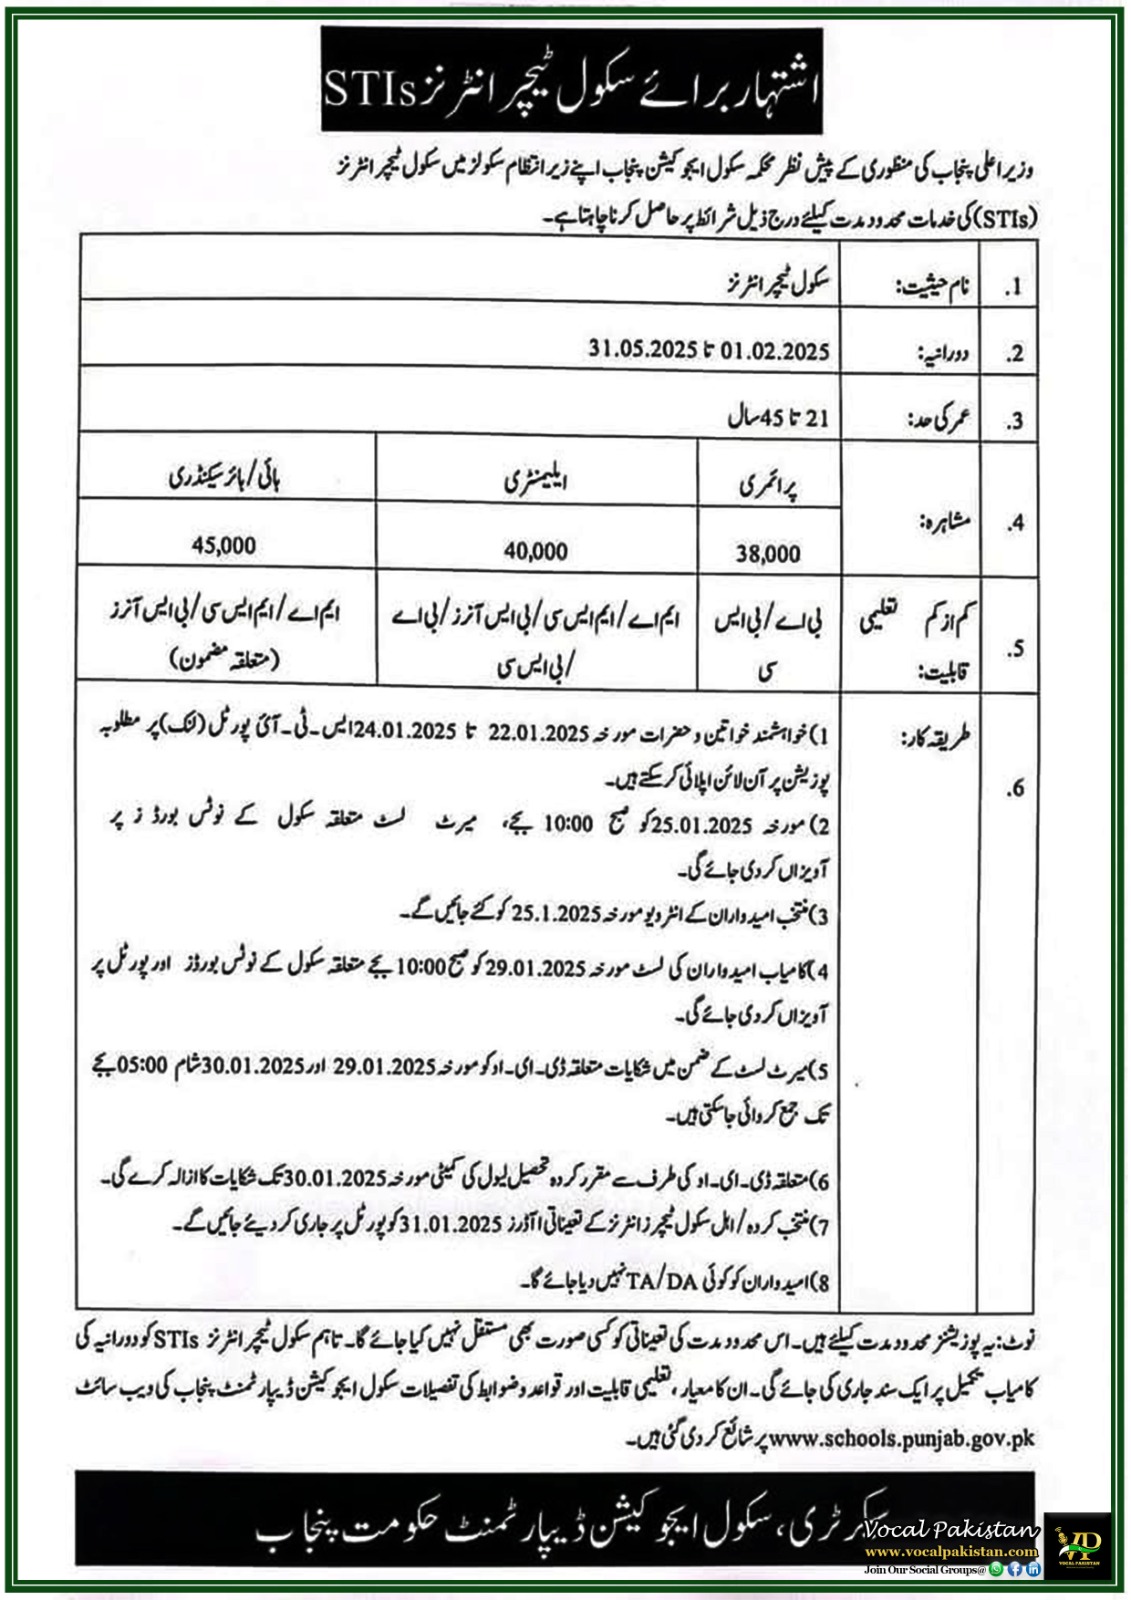 اشتہار برائے سکول ٹیچر انٹرنز STIs
وزیر اعلی پنجاب کی منظوری کے پیش نظر محکمہ سکول ایجوکیشن پنجاب اپنے زیر انتظام سکولز میں سکول ٹیچر انٹرنز
(STIs) کی خدمات محدود مدت کیلئے درج ذیل شرائط پر حاصل کرنا چاہتا ہے۔
1. نام حیثیت: سکول ٹیچر انٹرنز
2. دورانیہ: 01.02.2025 تا 31.05.2025
3. عمر کی حد: 21 تا 45 سال
4. مشاہرہ: پرائمری ایلیمنٹری ہائی/ہائر سیکنڈری
38,000 40,000 45,000
5. کم از کم تعلیمی بی اے/بی ایس ایم اے/ایم ایس سی/بی ایس آنرز/بی اے ایم اے/ایم ایس سی/بی ایس آنرز
قابلیت: سی /بی ایس سی (متعلقہ مضمون)
6. طریقہ کار: 1) خواہشمند خواتین و حضرات مورخہ 22.01.2025 تا 24.01.2025 ایس۔ٹی۔آئی پورٹل (لنک) پر مطلوبہ
پوزیشن پر آن لائن اپلائی کر سکتے ہیں۔
2) مورخہ 25.01.2025 کو صبح 10:00 بجے، میرٹ لسٹ متعلقہ سکول کے نوٹس بورڈز پر
آویزاں کر دی جائے گی۔
3) منتخب امیدواران کے انٹرویو مورخہ 25.1.2025 کو کئے جائیں گے۔
4) کامیاب امیدواران کی لسٹ مورخہ 29.01.2025 کو صبح 10:00 بجے متعلقہ سکول کے نوٹس بورڈز اور پورٹل پر
آویزاں کر دی جائے گی۔
5) میرٹ لسٹ کے ضمن میں شکایات متعلقہ ڈی۔ای۔او کو مورخہ 29.01.2025 اور 30.01.2025 شام 05:00 بجے
تک جمع کروائی جا سکتی ہیں۔
6) متعلقہ ڈی۔ای۔او کی طرف سے مقرر کردہ تحصیل لیول کی کمیٹی مورخہ 30.01.2025 تک شکایات کا ازالہ کرے گی۔
7) منتخب کردہ/اہل سکول ٹیچرز انٹرنز کے تعیناتی آآڈرز 31.01.2025 کو پورٹل پر جاری کر دیئے جائیں گے۔
8) امیدواران کو کوئی TA/DA نہیں دیا جائے گا۔
نوٹ: یہ پوزیشنز محدود مدت کیلئے ہیں۔ اس محدود مدت کی تعیناتی کو کسی صورت بھی مستقل نہیں کیا جائے گا۔ تاہم سکول ٹیچر انٹرنز STIs کو دورانیہ کی
کامیاب تکمیل پر ایک سند جاری کی جائے گی۔ ان کا معیار، تعلیمی قابلیت اور قواعد و ضوابط کی تفصیلات سکول ایجوکیشن ڈیپارٹمنٹ پنجاب کی ویب سائٹ
www.schools.punjab.gov.pk پر شائع کر دی گئی ہیں۔
سیکرٹری، سکول ایجوکیشن ڈیپارٹمنٹ حکومت پنجاب
Vocal Pakistan
www.vocalpakistan.com
Join Our Social Groups@
VP
VOCAL PAKISTAN